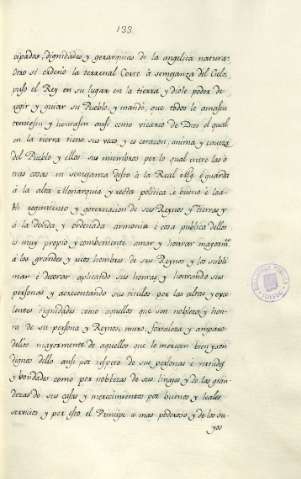 133.
cipados, dignidades y gerarquias de la angelica natura:
Otro si ordenò la terrenal Corte à semganza del Cielo,
puso el Rey en su lugar en la tierra y diole poder de
regir y guiar su Pueblo, y mandó, que todos le amasen
temiesen y honrasen ansi como vicario de Dios el qual
en la tierra tiene sus veces y es corazon, anima y caveza
del Pueblo y ellos sus miembros por lo qual entre las o-
tras cosas en semganza desto à la Real Mag.d è guarda
à la alta Monarquia y recta politica, è bueno è loa-
ble regimiento y governacion de sus Reynos y tierras y
à la devida y ordenada armonia è cosa publica dellos
es muy propio y combeniente amar y honrar mayorm.te
à los grandes y ricos hombres de sus Reynos y los subli-
mar è decorar aplicando sus honras, y honrando sus
personas y acrecentando sus titulos por las altas y exce-
lentes dignidades como aquellos que son nobleza y hon-
ra de su persona y Reynos, muro, fortaleza y amparo
dellos mayormente de aquellos que lo merecen bien y son
dignos dello ansi por respeto de sus personas è virtudes
y bondades como por nobleza de sus linages y de las gran-
dezas de sus casas y merecimientos por buenos y leales
servicios y por esto, el Principe es mas poderoso y de los su-
yos